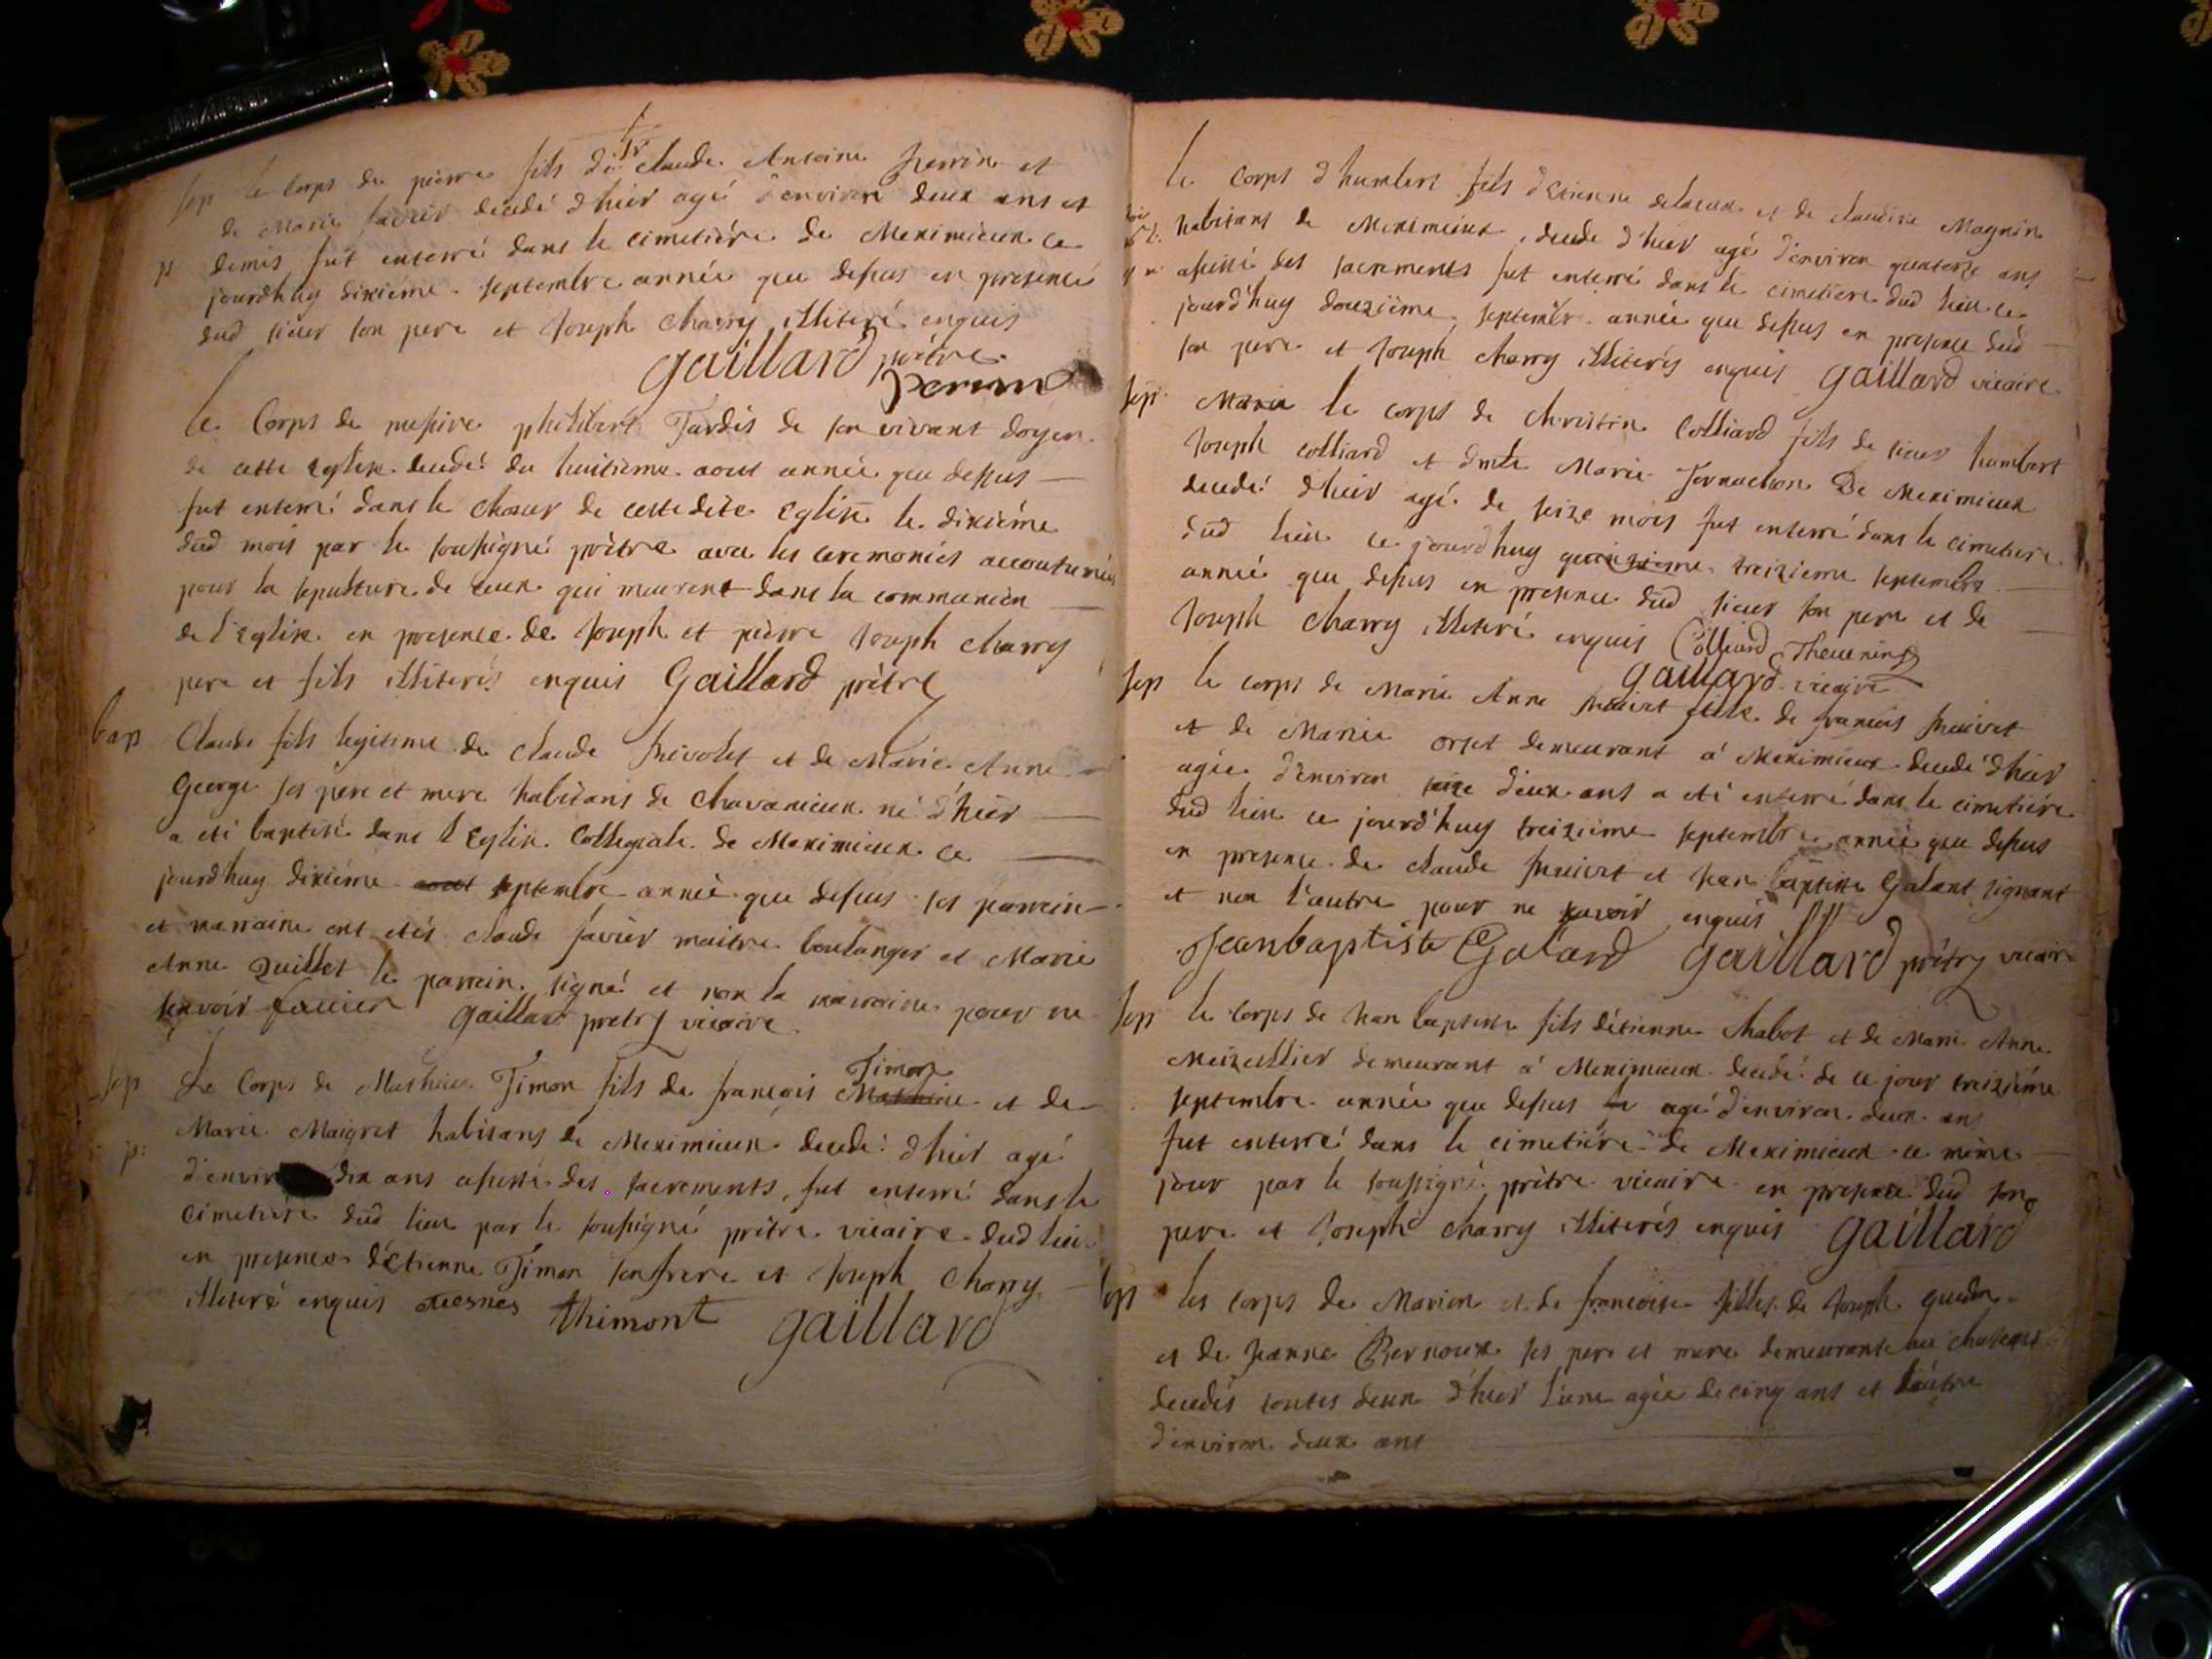 sep le Corps de pierre fils de sr claude Antoine perrin et
de Marie favier decedé d'hier agé d'environ deux ans et
demis fut enterré dans le cimetière de Meximieux ce
jourdhuy dixieme septembre année que dessus en presence
dud sieur son pere et Joseph Charry illiteré enquis
gaillard prètre
perrin
le Corps de messire philibert Tardis de son vivant doyen
de cette Eglise decedé du huitieme aout année que dessus
fut enterré dans le choeur de cette dite Eglise le dixiéme
dud mois par le soussigné prètre avec les ceremonies accoutumées
pour la sepulture de ceux qui meurent dans la communion
de l'Eglise en presence de Joseph et pierre Joseph Charry
pere et fils illiterés enquis Gaillard prètre
bap Claude fils legitime de Claude et de Marie Anne
George ses pere et mere habitans de Chavanieux né d'hier
a eté baptisé dans l'Eglise Collegiale de Meximieux ce
jourdhuy dixiéme aout septembre année que dessus ses parrein
et marraine ont etés claude favier maitre boulanger et Marie
Anne Quillet le parrein signé et non la marraine pour ne
sçavoir favier gaillard pretre vicaire
sep Le Corps de Mathieu Timon fils de françois Mathieu Timon et de
Marie Maigret habitans de Meximieux decedé d'hier agé
d'environ dix ans assisté des sacrements, fut enterré dans le
cimetière dud lieu par le soussigné prètre vicaire dud lieu
en presence d'étienne Timon son frere et Joseph Charry
illiteré enquis thimont gaillard
le Corps d'humbert fils d'étienne delacua et de claudine Magnin
habitans de Meximieux, decede d'hier agé d'environ quatorze ans
assisté des sacrements fut enterré dans le cimetiere dud lieu ce
jourd'huy douziéme septembre année que dessus en presence dud
son pere et Joseph charry illiterés enquis gaillard vicaire
sep Marie le corps de Christin Colliard fils de sieur humbert
Joseph colliard et dmlle Marie De Meximieux
decedé d'hier agé de seize mois fut enterré dans le cimetiere
dud lieu ce jourd'huy quinzieme treizieme septembre
année que dessus en presence dud sieur son pere et de
Joseph Charry illiteré enquis Colliard Thevenin
gaillard vicaire
sep le corps de Marie Anne fille de francois
et de Marie orset demeurant à Meximieux decedé d'hier
agée d'environ deux ans a eté enterré dans le cimetiére
dud lieu ce jourd'huy treizieme septembre année que dessus
en presence de claude et jean baptiste Galant signant
et non l'autre pour ne savoir enquis
Jeanbaptiste Galand gaillard prètre vicaire
sep le Corps de jean baptiste fils d'étienne Chabot et de Marie Anne
Meizellier demeurant à Meximieux decedé de ce jour treiziéme
septembre année que dessus agé d'environ deux ans
fut enterré dans le cimetiére de Meximieux ce même
jour par le soussigné prètre vicaire en presence dud son
pere et Joseph charry illiterés enquis gaillard
sep les corps de Marion et de francoise filles de Joseph
et de jeanne Bernoux ses pere et mere demeurant au
decedés toutes deux d'hier l'une agée de cinq ans et l'autre
d'environ deux ans